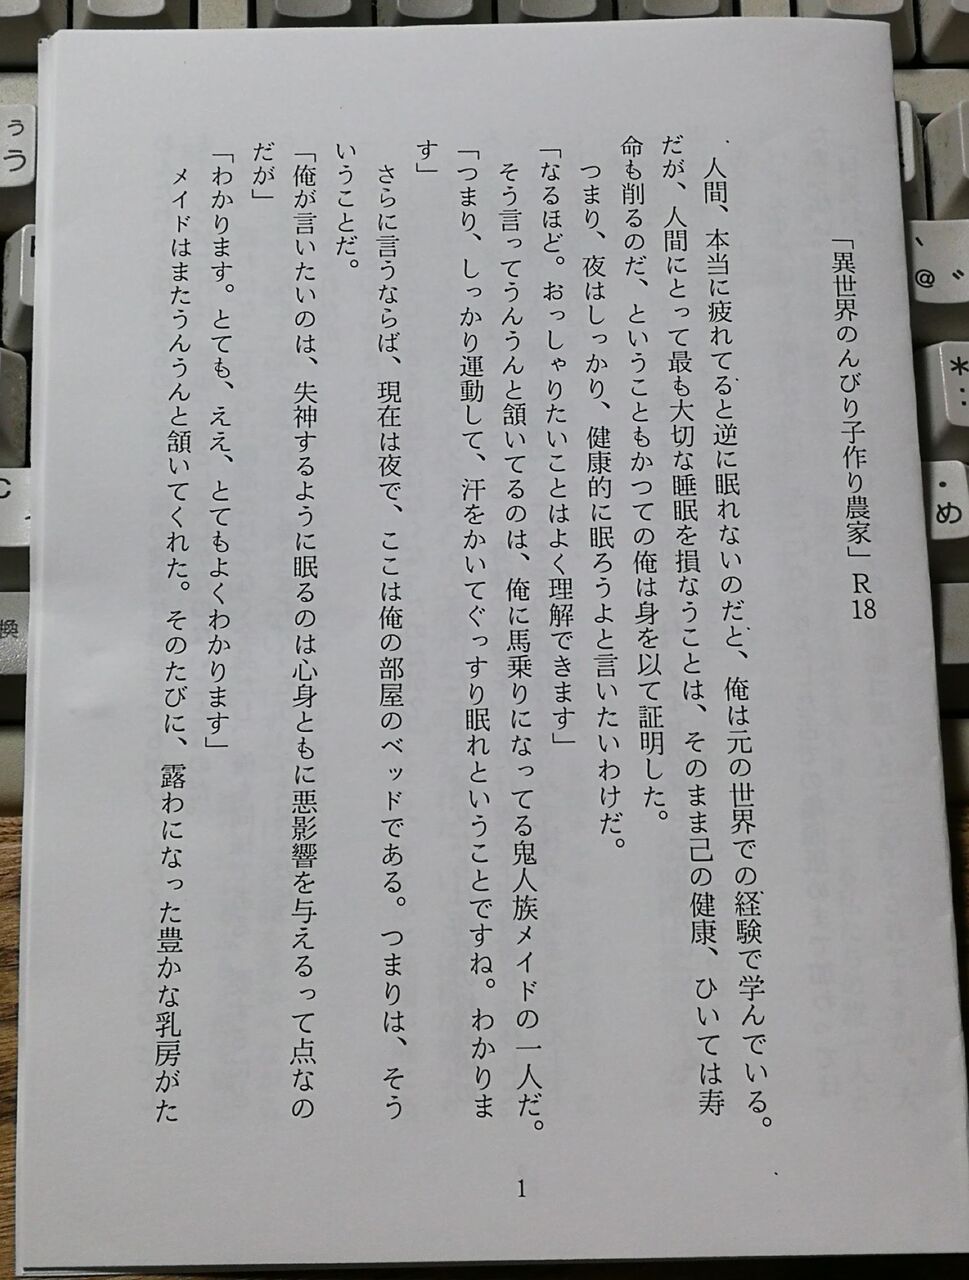 「異世界のんびり子作り農家」R18
人間、本当に疲れてると逆に眠れないのだと、俺は元の世界での経験で学んでいる。
だが、人間にとって最も大切な睡眠を損なうことは、そのまま己の健康、ひいては寿
命も削るのだ、ということもかつての俺は身を以て証明した。
つまり、夜はしっかり、健康的に眠ろうよと言いたいわけだ。
「なるほど。おっしゃりたいことはよく理解できます」
そう言ってうんうんと頷いてるのは、俺に馬乗りになってる鬼人族メイドの一人だ。
「つまり、しっかり運動して、汗をかいてぐっすり眠れということですね。わかりま
す」
さらに言うならば、現在は夜で、ここは俺の部屋のベッドである。つまりは、そう
いうことだ。
「俺が言いたいのは、失神するように眠るのは心身ともに悪影響を与えるって点なの
だが」
「わかります。とても、ええ、とてもよくわかります」
メイドはまたうんうんと頷いてくれた。そのたびに、露わになった豊かな乳房がた
1
ぅ
う
、
@
゛
*
:
・
め
C
換